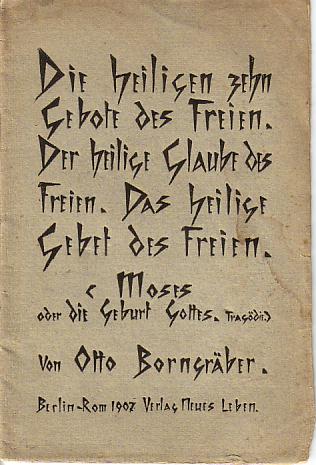 Die heiligen zehn
Gebote des Freien.
Der heilige Glaube des
Freien. Das heilige
Gebet des Freien.
( Moses
oder die Geburt Gottes. Tragödie.)
Von Otto Borngräber.
Berlin-Rom 1907 Verlag Neues Leben.